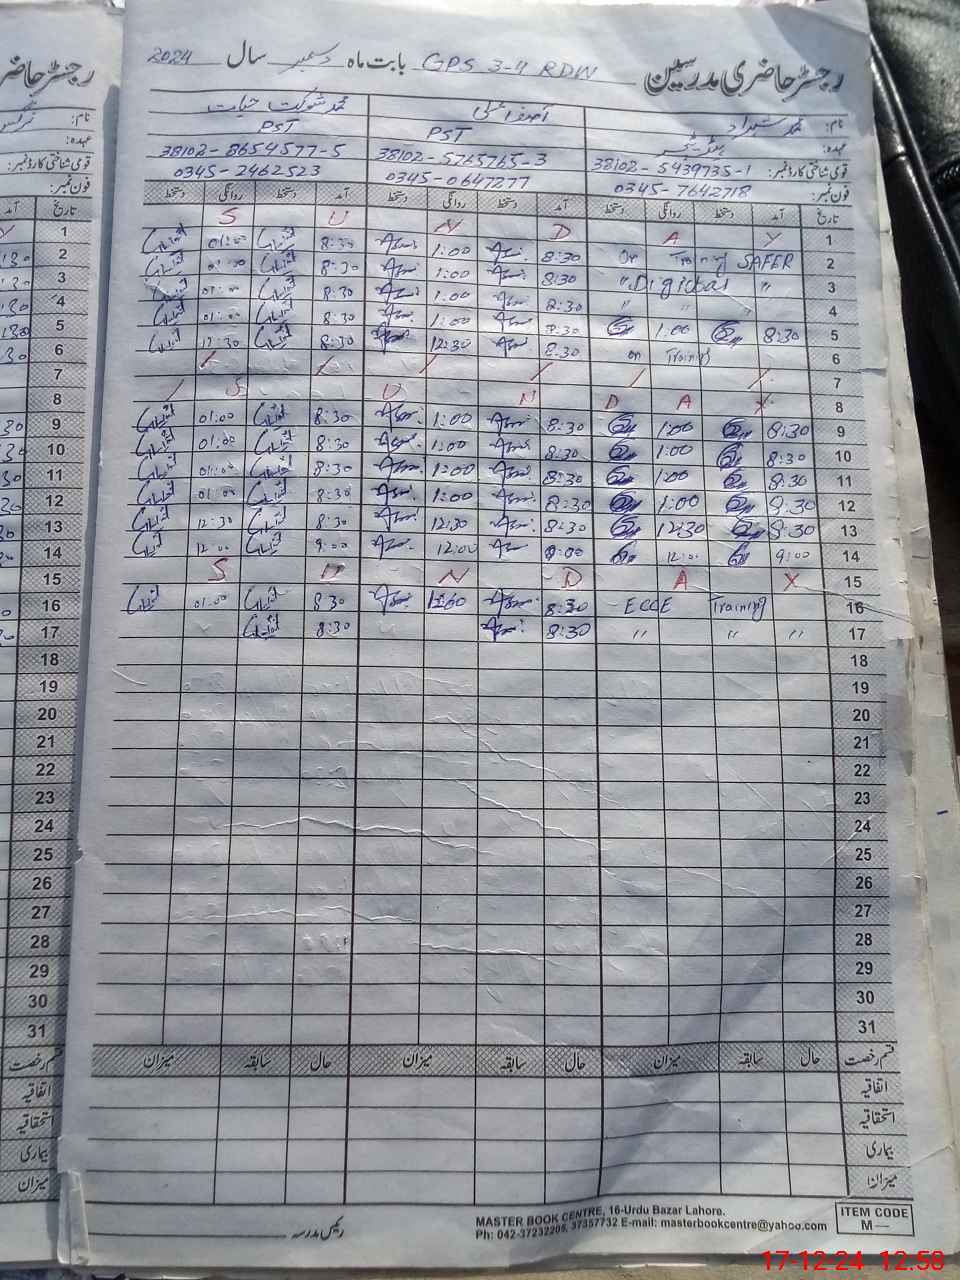 رجسٹر حاضری مدرسین GPS 3-4 RDW بابت ماہ دسمبر سال 2024
نام: محمد شہزاد آصف علی محمد شوکت حیات
عہدہ: ہیڈ ٹیچر PST PST
قومی شناختی کارڈ نمبر: 38102-5439735-1 38102-5765765-3 38102-8654577-5
فون نمبر: 0345-7642718 0345-0647277 0345-2462523
تاریخ آمد دستخط روانگی دستخط آمد دستخط روانگی دستخط آمد دستخط روانگی دستخط
1 S U N D A Y
2 On Training SAFER 8:30 1:00 8:30 01:00
3 " Digital " 8:30 1:00 8:30 01:00
4 " " 8:30 1:00 8:30 01:00
5 8:30 1:00 8:30 1:00 8:30 01:00
6 on Training 8:30 12:30 8:30 12:30
7 / / / / / /
8 / S U N D A Y
9 8:30 1:00 8:30 1:00 8:30 01:00
10 8:30 1:00 8:30 1:00 8:30 01:00
11 8:30 1:00 8:30 1:00 8:30 01:00
12 8:30 1:00 8:30 1:00 8:30 01:00
13 8:30 12:30 8:30 12:30 8:30 12:30
14 9:00 12:00 9:00 12:00 9:00 12:00
15 S U N D A Y
16 ECCE Training 8:30 8:30 01:00
17 " " " 8:30 8:30
18
19
20
21
22
23
24
25
26
27
28
29
30
31
قسم رخصت حال سابقہ میزان حال سابقہ میزان حال سابقہ میزان
اتفاقیہ
استحقاقیہ
بیماری
میزان
رئیس مدرسہ
MASTER BOOK CENTRE, 16-Urdu Bazar Lahore.
Ph: 042-37232205, 37357732 E-mail: masterbookcentre@yahoo.com
ITEM CODE
M—
17-12-24 12.58